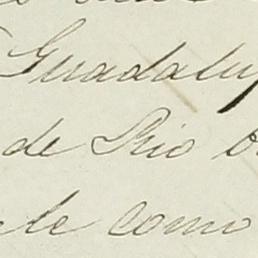 Guadalup
de Rio
le como